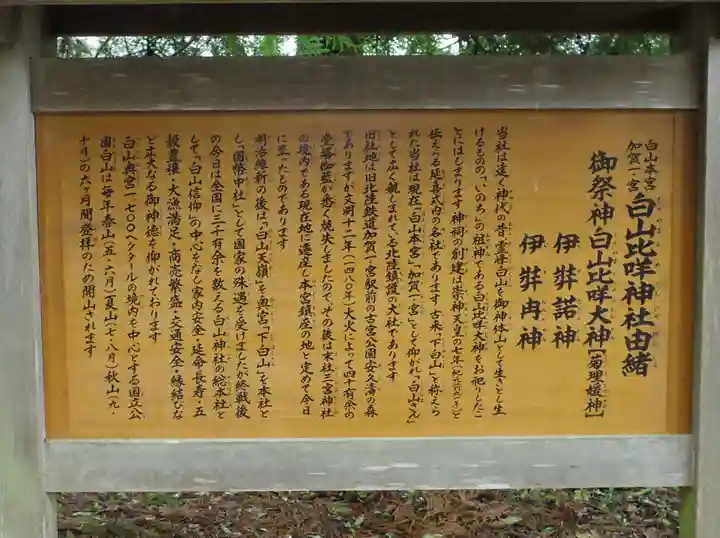 白山本宮
加賀一宮
白山比咩神社由緒
御祭神白山比咩大神【菊理媛神】
伊弉諾神
伊弉冉神
当社は遠く神代の昔、霊峰白山を御神体山として生きとし生
けるものの「いのち」の祖神である白山比咩大神をお祀りしたこ
とにはじまります神祠の創建は崇神天皇の七年(紀元前九一年)と
伝えらる延喜式内の名社であります古来「下白山」と称えら
れた当社は現在「白山本宮」「加賀一宮」として仰がれ「白山さん」
として広く親しまれている北陸鎮護の大社であります
旧社地は旧北陸鉄道加賀一宮駅前の古宮公園安久濤の森
でありますが文明十二年(一四八〇年)大火によって四十有余の
堂塔伽藍が悉く焼失しましたので、その後は末社三宮神社
の境内である現在地に遷座し本宮鎮座の地と定めて今日
に至ったものであります
明治維新の後は「白山天嶺」を奥宮「下白山」を本社と
し「国幣中社」として国家の殊遇を受けましたが終戦後
の今日は全国に三千有余を数える白山神社の総本社と
して「白山信仰」の中心をなし家内安全・延命長寿・五
穀豊穣・大漁満足・商売繁盛・交通安全・縁結びな
ど広大なる御神徳を仰がれております
白山奥宮一七〇〇ヘクタールの境内を中心とする国立公
園白山は毎年春山(五・六月)夏山(七・八月)秋山(九・
十月)の六ヶ月間登拝のため開山されます